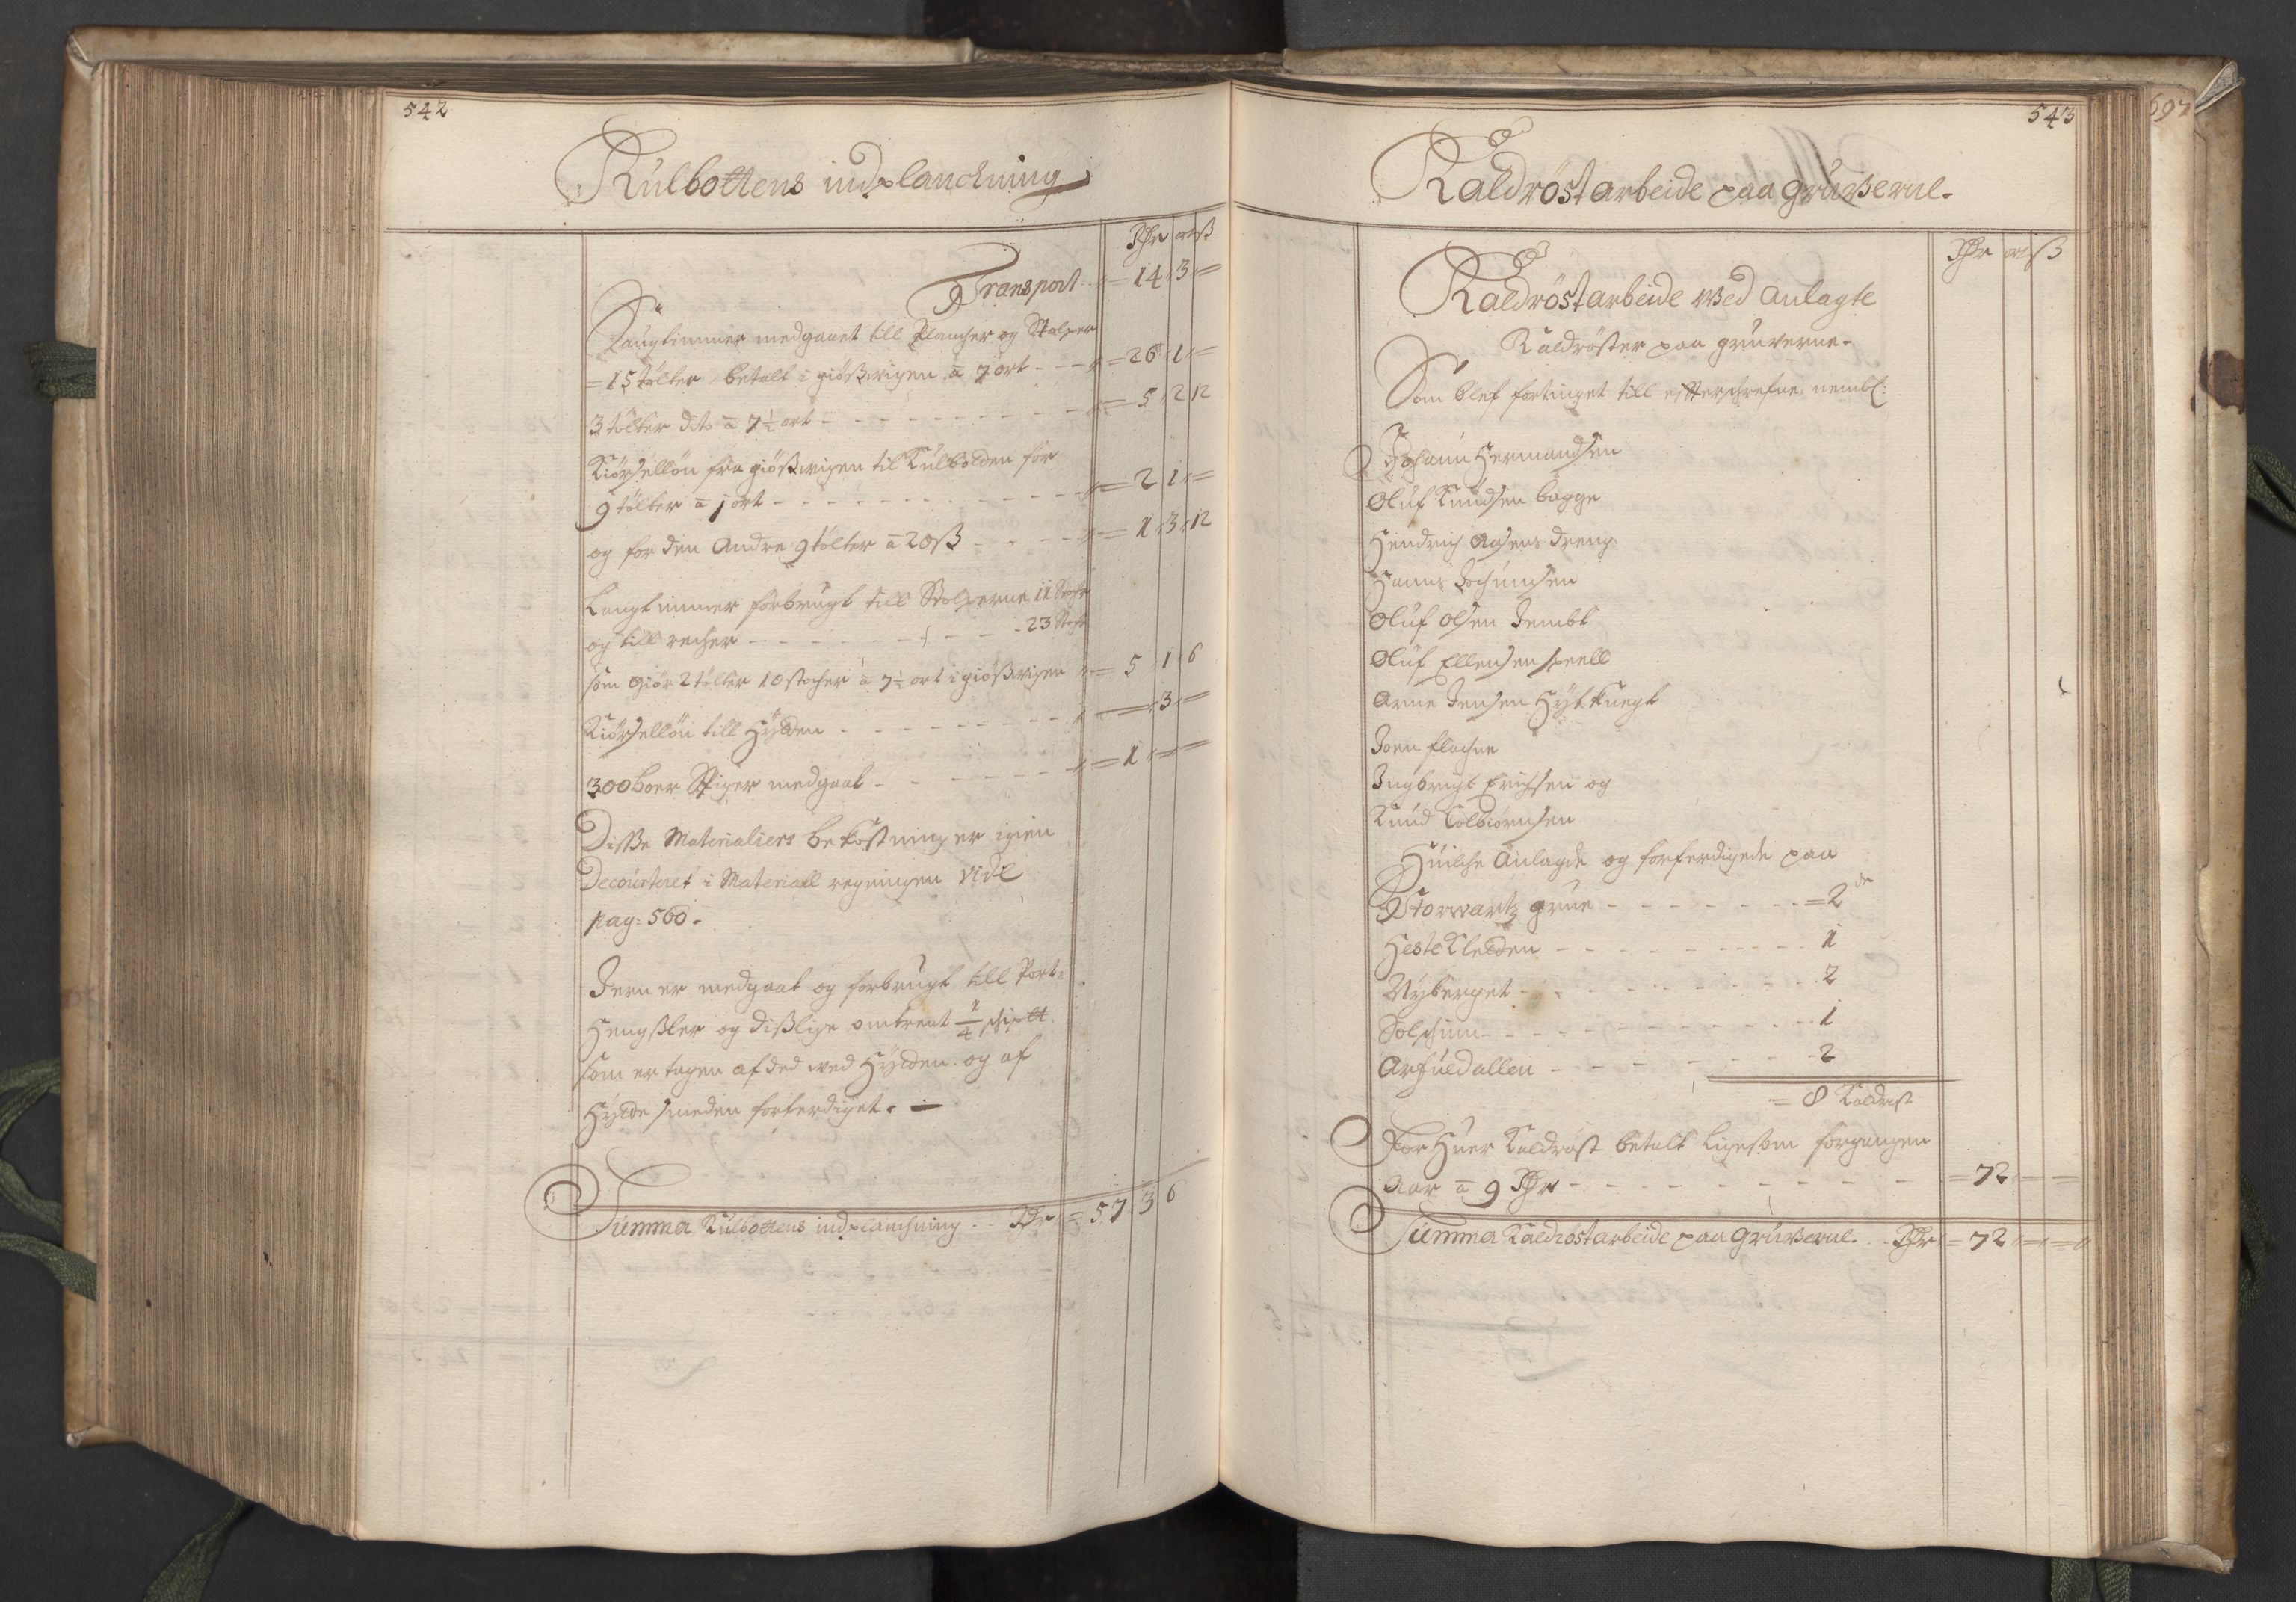 542
Kulbottens indplanckning
Rdr ort ß
Transport - = 14 3 =
Saugtimmer medgaaet till Plancher og Stolper
= 15 tolter betalt i giößvigen a 7 ort - - = 26 1 =
3 tolter dito a 7½ ort - - - - - - - = 5 2 12
Kiörsellön fra giößvigen til Kulbodden for
9 tolter a 1 ort - - - - - - - - - = 2 1 =
og for den Andre 9 tolter a 20 ß - - - - = 1 3 12
Langtimmer forbrugt till Stolperne 11 Stocher
og till recher - - - - - - - - - 23 Stocher
som Giör 2 tolter 10 stocher a 7½ ort i giößvigen = 5 1 6
Kiörsellön till Hytten - - - - - - - = 3 =
300 boer Spiger medgaat - - - - - - = 1 = =
Disse Materialiers bekostning er igien
Decourteret i Material regningen vide
pag: 560.
Jern er medgaat og forbrugt till Port-
Hengßler og dißlige omtrent ¼ schiptt
som er tagen af ded ved Hytten og af
Hytte smeden forferdiget. -
Summa Kulbottens indplanchning .. Rdr = 57 3 6
543
697
Kaldröstarbeide paa Gruverne.
Rdr ort ß
Kaldröstarbeide ved anlagte
Kaldröster paa gruverne.
Som blef fortinget till efterschrefne nembl:
Johann Hermandsen
Oluf Knudsen bagge
Hendrich Aasens dreng
Hanns Jochumsen
Oluf Olsen Jembt
Oluf Ellensen spell
Arne Jensen Hytknegt
Joen flachne
Ingbrigt Erichsen og
Knud Tolbiörnsen
Huilche Anlagde og forferdigede paa
Storwartz grue - - - - - - = 2 de
HesteKletten - - - - - - - 1
Nyberget - - - - - - - - 2
Solschinn - - - - - - - - 1
Arfuedallen - - - - - - - 2
= 8 Kaldröst
For Huer Kaldröst betalt ligesom forgangen
Aar a 9 Rdr - - - - - - - - = 72 - =
Summa Kaldröstarbeide paa Gruverne. .. Rdr = 72 = =